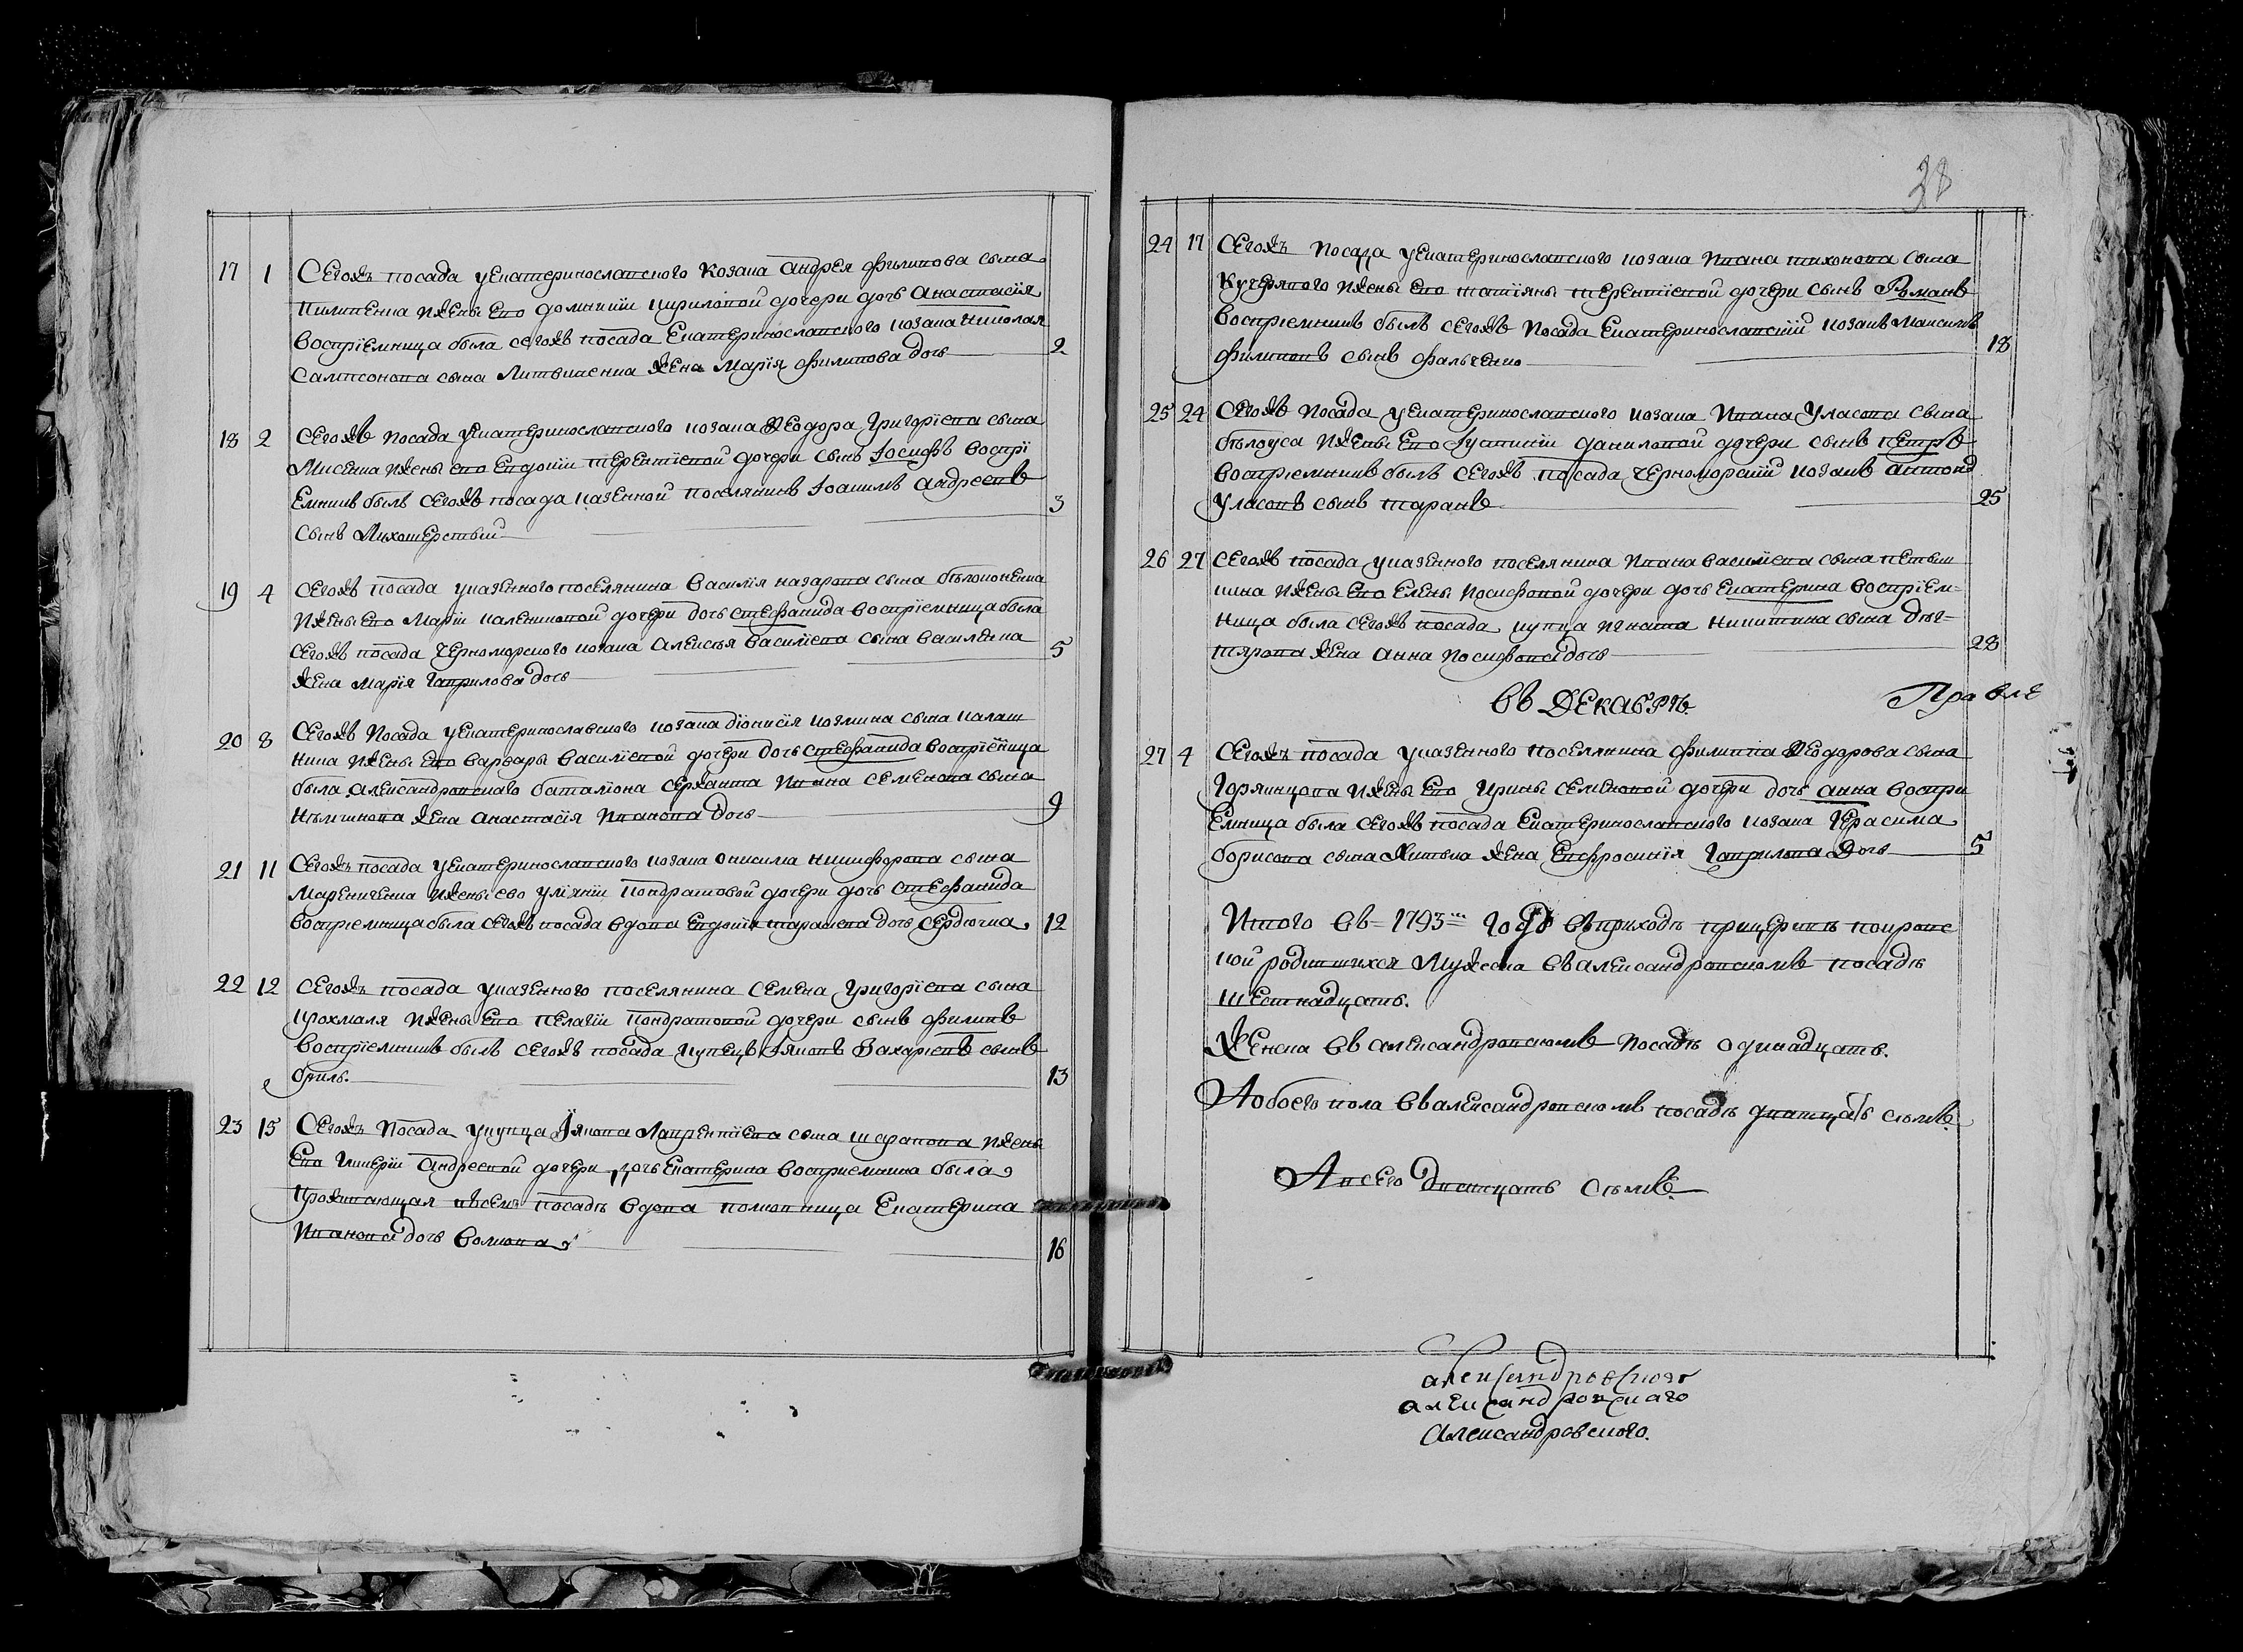 17 1 Сегожъ посада уекатеринославского козака андрея филипова сына
Пилипенка ижены его домникии кириловой дочери дочь анастасїя
воспрїемница была сегожъ посада Екатеринославского козака николая
Сампсонова сына Литвиненка жена Марїя филипова дочь 2
18 2 Сегожъ посада уекатеринославского козака Ѳеодора Григорїева сына
Мисенка ижены его Евдокїи терентїевой дочери сынъ Іосифъ воспрї
емникъ былъ сегожъ посада казенной поселянинъ Іоакимъ андреевъ
сынъ Лихошерстый 3
19 4 Сегожъ посада указенного поселянина василїя назарова сына бѣлоконенка
ижены его Марїи калениковой дочери дочь стефанида воспрїемница была
сегожъ посада черноморского козака алексѣя василїева сына василенка
жена марїя гаврилова дочь 5
20 8 Сегожъ посада уекатеринославского козака дїонисїя козмина сына калаш
ника ижены его варвары василїевой дочери дочь стефанида воспрїемница
была александровского баталїона сержанта ивана семенова сына
жена анастасїя иванова дочь 9
21 11 Сегожъ посада уекатеринославского козака онисима никифорова сына
Марениченка ижены ево улїянїи кондратовой дочери дочь стефанида
воспрїемница была сегожъ посада вдова Евдокїя тарасиева дочь сердючка 12
22 12 Сегожъ посада указенного поселянина семена григорїева сына
крохмаля ижены его пелагїи кондратовой дочери сынъ филипъ
воспрїемникъ былъ сегожъ посада купецъ Іяковъ Захарїевъ сынъ
бриль. 13
23 15 Сегожъ посада укупца Іякова Лаврентїева сына шарапова ижены
его гликерїи андреевой дочери дочь екатерина воспрїемница была
проживающая всемъ посадѣ вдова полковница Екатерина
иванова дочь волкова 16
38
24 17 Сегожъ посада уекатеринославского козака ивана тихонова сына
кучерявого ижены его татїяны терентїевой дочери сынъ Романъ
воспрїемникъ былъ сегожъ посада Екатеринославскїй козакъ Максимъ
филиповъ сынъ фальченко 18
25 24 Сегожъ посада уекатеринославского козака ивана Уласова сына
бѣлоуса ижены его Іустинїи даниловой дочери сынъ петръ
воспрїемникъ былъ сегожъ посада черноморскїй козакъ антонъ
уласовъ сынъ таранъ 25
26 27 сегожъ посада указенного поселянина ивана василїева сына
ижены его елены иосифовой дочери дочь екатерина воспрїем-
ница была сегожъ посада купца игната никитина сына дѣг-
тярова жена анна иосифова дочь 28
въ ДЕКАБРѢ.
27 4 Сегожъ посада указенного поселянина филиппа Ѳеодорова сына
горяинцова ижены его ирины семеновой дочери дочь анна воспри
емница была сегожъ посада екатеринославского козака герасима
борисова сына жена ефросинїя гаврилова дочь 5
Итого въ 1793м годѣ въприходѣ прицерквѣ покровс
кой родившихся мужеска валександровскомъ посадѣ
шестнадцать.
Женска въ александровскомъ посадѣ одинадцать.
Аобоего пола валександровскомъ посадѣ дватцать сѣмъ.
Авсего дватцать сѣмъ.
александровского
александровскаго
Александровского.